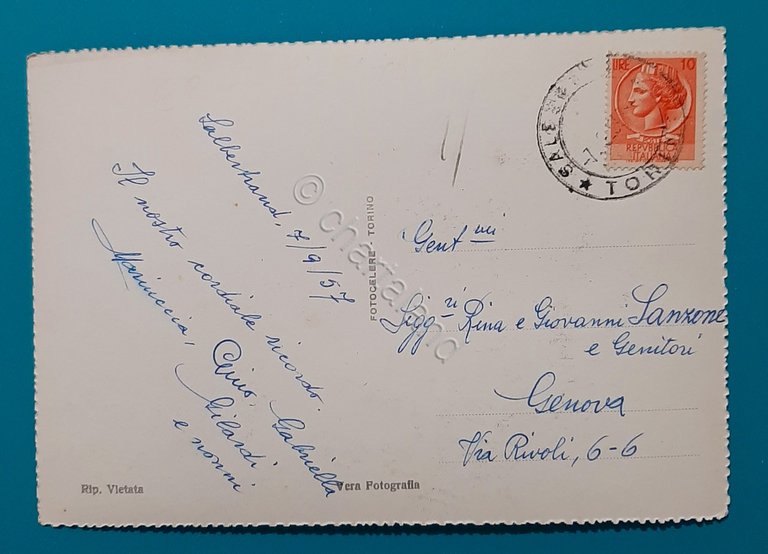 Salbertrand, 7/9/57
Il nostro cordiale ricordo.
Mariuccia, Gino, Gabriella
Gilardi
e nonni
Gent.mi
Sigg.ri Rina e Giovanni Sanzone
e Genitori
Genova
Via Rivoli, 6-6
FOTOCELERE - TORINO
Rip. Vietata
Vera Fotografia
LIRE 10
POSTE
REPVBBLICA
ITALIANA
TORINO
© chartaland